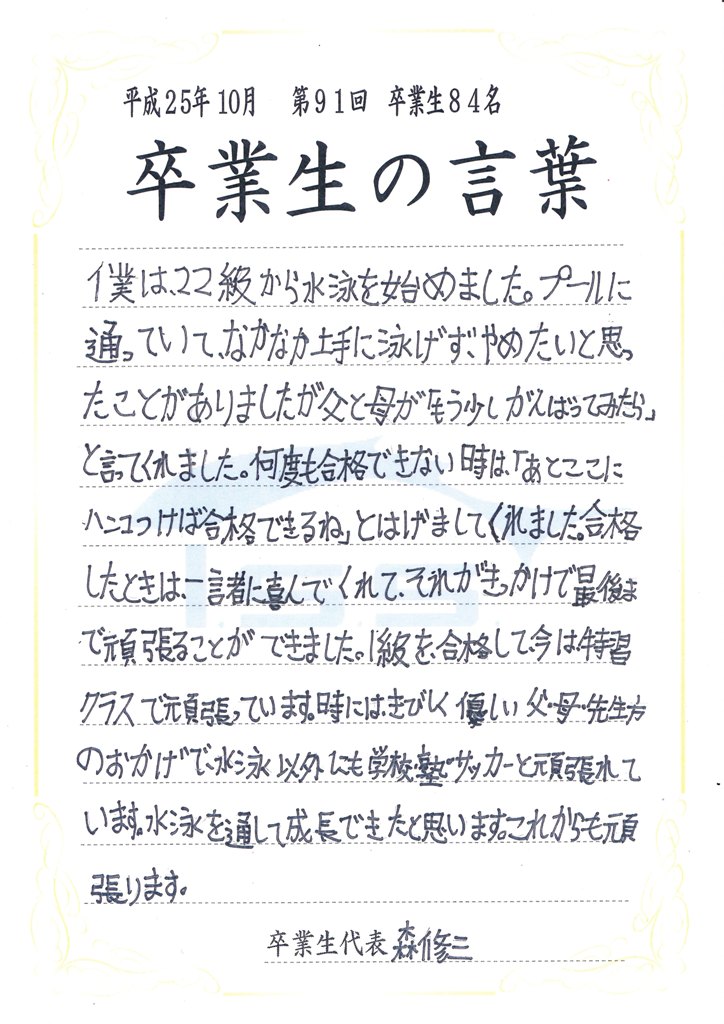 平成25年10月　第91回　卒業生84名
卒業生の言葉
僕は、22級から水泳を始めました。プールに
通っていて、なかなか上手に泳げず、やめたいと思っ
たことがありましたが父と母が「もう少しがんばってみたら」
と言ってくれました。何度も合格できない時は、「あとここに
ハンコつけば合格できるね」とはげましてくれました。合格
したときは、一諸に喜んでくれて、それがきっかけで最後ま
で頑張ることができました。1級を、合格して、今は、特習
クラスで頑張っています。時には、きびしく優しい父・母・先生方
のおかげで、水泳以外にも学校・塾・サッカーと頑張れて
います。水泳を通して成長できたと思います。これからも頑
張ります。
卒業生代表 森修三